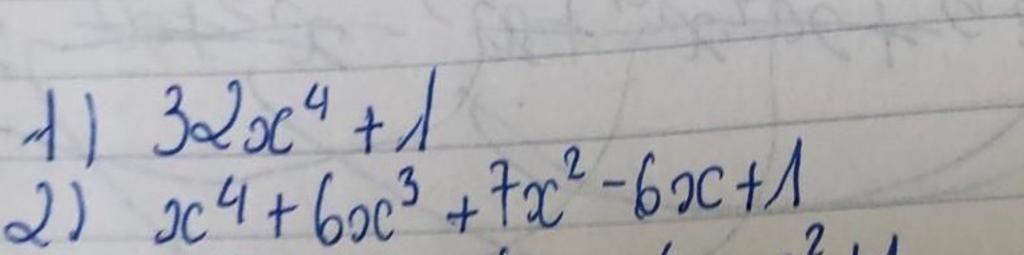 1) 32x⁴ + 1
2) x⁴ + 6x³ + 7x² - 6x + 1